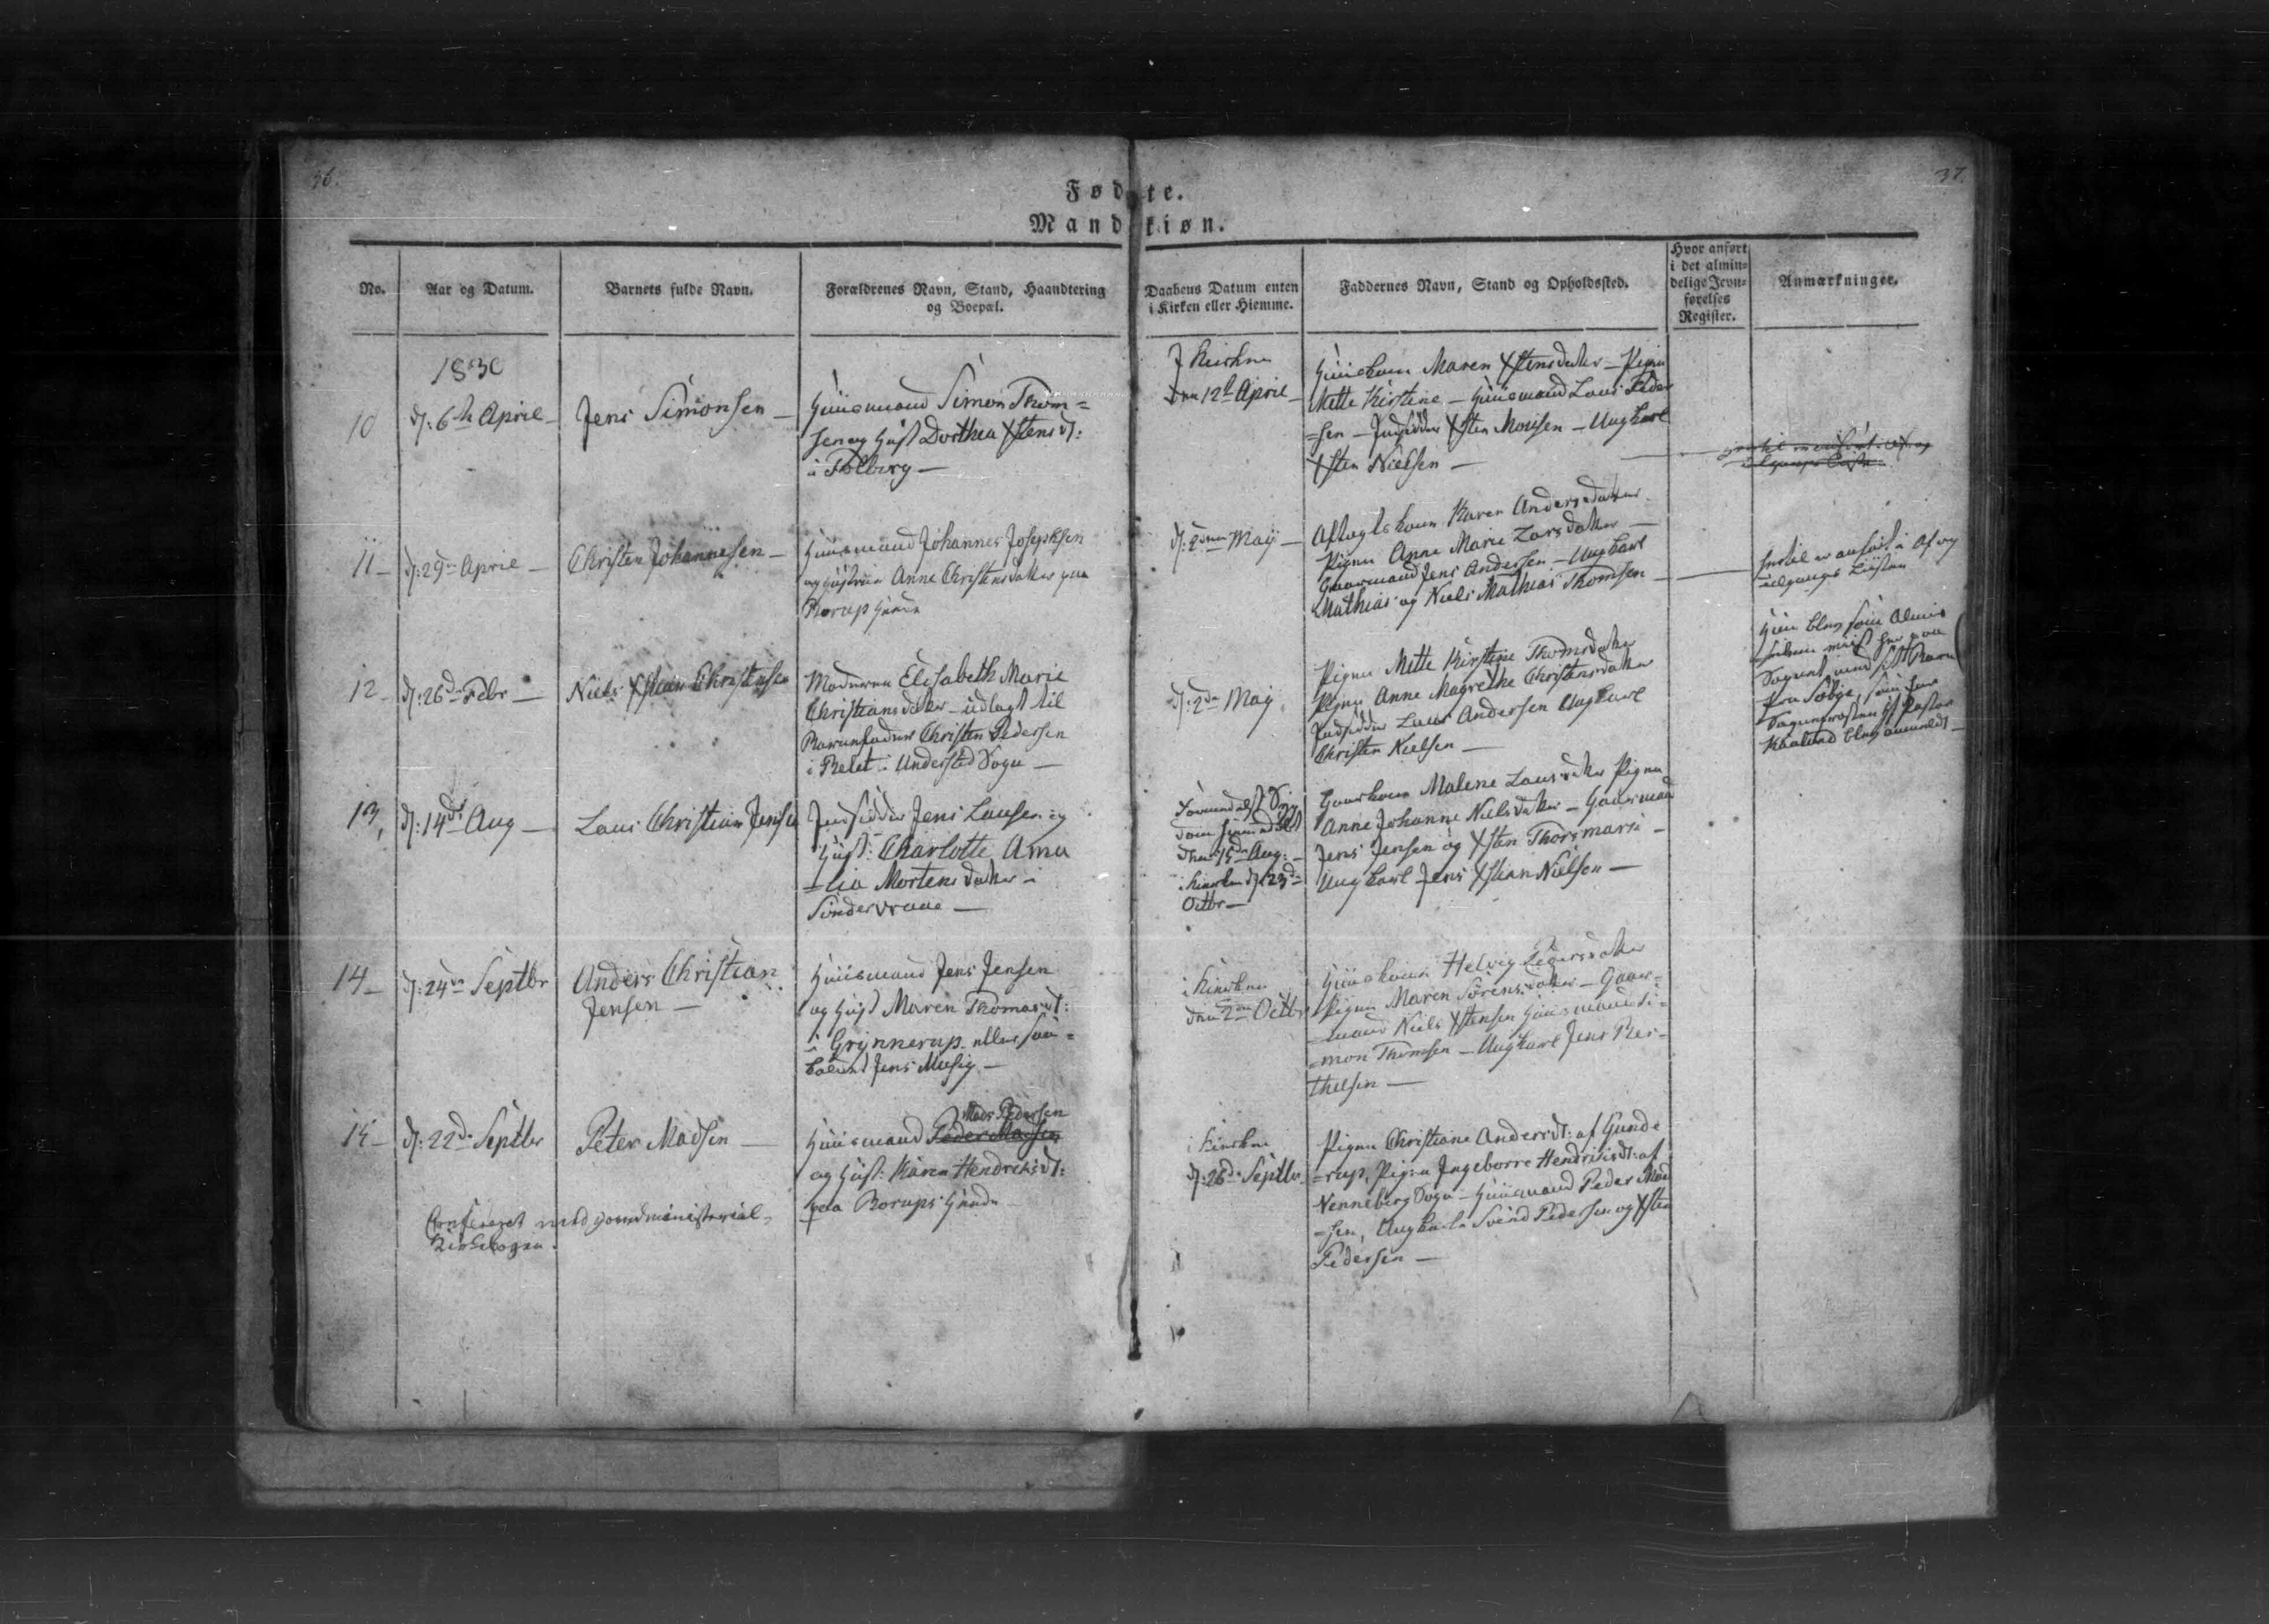 36.
37.
Fødte.
Mandkiøn.
No.
Aar og Datum.
Barnets fulde Navn.
Forældrenes Navn, Stand, Haandtering
og Boepæl.
Daabens Datum enten
i Kirken eller Hiemme.
Faddernes Navn, Stand og Opholdssted.
Hvor anført
i det almin=
delige Jevn=
førelses
Register.
Anmærkninger.
1830
10
d: 6te April
Jens Simonsen —
Huusmand Simon Thom=
sen og Hust Dorthea Xstensd:
i Tolberg —
I Kirken
den 12te April —
Huuskone Maren Xstensdatter — Pigen
Mette Kirstine — Huusmand Laus Peder
=sen — Indsidder Xsten Mouisen — Ungkarl
Xsten Nielsen —
11 —
d: 29de April —
Christen Johannesen —
Huusmand Johannes Josephsen
og Hustrue Anne Christensdatter paa
Borup
d: 2den May —
Aftægtskone Karen Andersdatter
Pigen Anne Marie Larsdatter —
Gaarmand Jens Andersen — Ungkarl
Mathias og Niels Mathias Thomsen —
Indtil er anført i Af og
Tilgangs Listen
12 —
d: 26de Febr —
Niels Xstian Christensen
Moderen Elisabeth Marie
Christiansdatter — udlagt til
Barnefader Christen Pedersen
i Understed Sogn —
d: 2den May
Pigen Mette Kirstine Thomsdatter
Pigen Anne Magrethe Christensdatter
Indsidder Laus Andersen Ungkarl
Christen Nielsen —
Hun blev som Almis
her paa
Sognet med sit Barn
fra Sæbye, som
Sognepræsten Hr Pastor
Kaalund blev anmeldt —
13,
d: 14de Aug —
Laus Christian Jensen
Indsidder Jens Lausen og
Hust: Charlotte Ama
=lia Mortensdatter i
Sundervraae —
den 15de Aug: —
i Kirken d: 23de
Octbr —
Gaarkone Malene Lausdatter Pigen
Anne Johanne Nielsdatter — Gaarmand
Jens Jensen og Xsten Thorsmark —
Ungkarl Jens Xstian Nielsen —
14 —
d: 24de Septbr
Anders Christian
Jensen —
Huusmand Jens Jensen
og Hust Maren Thomasd:
i Grynnerup eller saa=
kaldet Jens Musig —
i Kirken
den 2den Octbr
Huuskone Helvig Pedersdatter
Pigen Maren Sörensdatter — Gaar=
=mand Niels Xstensen Huusmand Si=
=mon Thomsen — Ungkarl Jens Ber=
thelsen —
15 —
d: 22de Septbr
Peter Madsen —
Mads Pedersen
Huusmand Peder Madsen
og Hust: Karen Hendriksd:
paa Borups Grund
i Kirken
d: 26de Septbr
Pigen Christiane Andersd: af Gunde
=rup, Pigen Ingeborre Hendriksd: af
Venneberg Sogn — Huusmand Peder Mad
=sen, Ungkarle Svend Pedersen og Xsten
Pedersen —
Confereret med Contraministerial-
Kirkebogen.